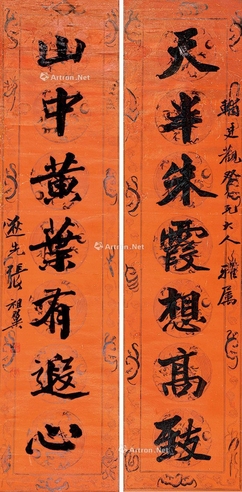 天半朱霞想高致
山中黄葉有遐心
大人雅屬
張祖翼
Artron.Net
Artron.Net
Artron.Net
Artron.Net